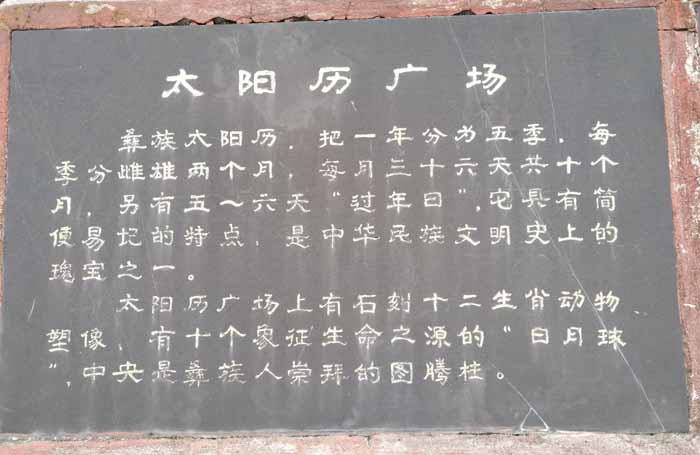 太阳历广场
彝族太阳历，把一年分为五季，每
季分雌雄两个月，每月三十六天，共十个
月，另有五～六天“过年日”，它具有简
便易记的特点，是中华民族文明史上的
瑰宝之一。
太阳历广场上有石刻十二生肖动物
塑像、有十个象征生命之源的“日月球
”，中央是彝族人崇拜的图腾柱。